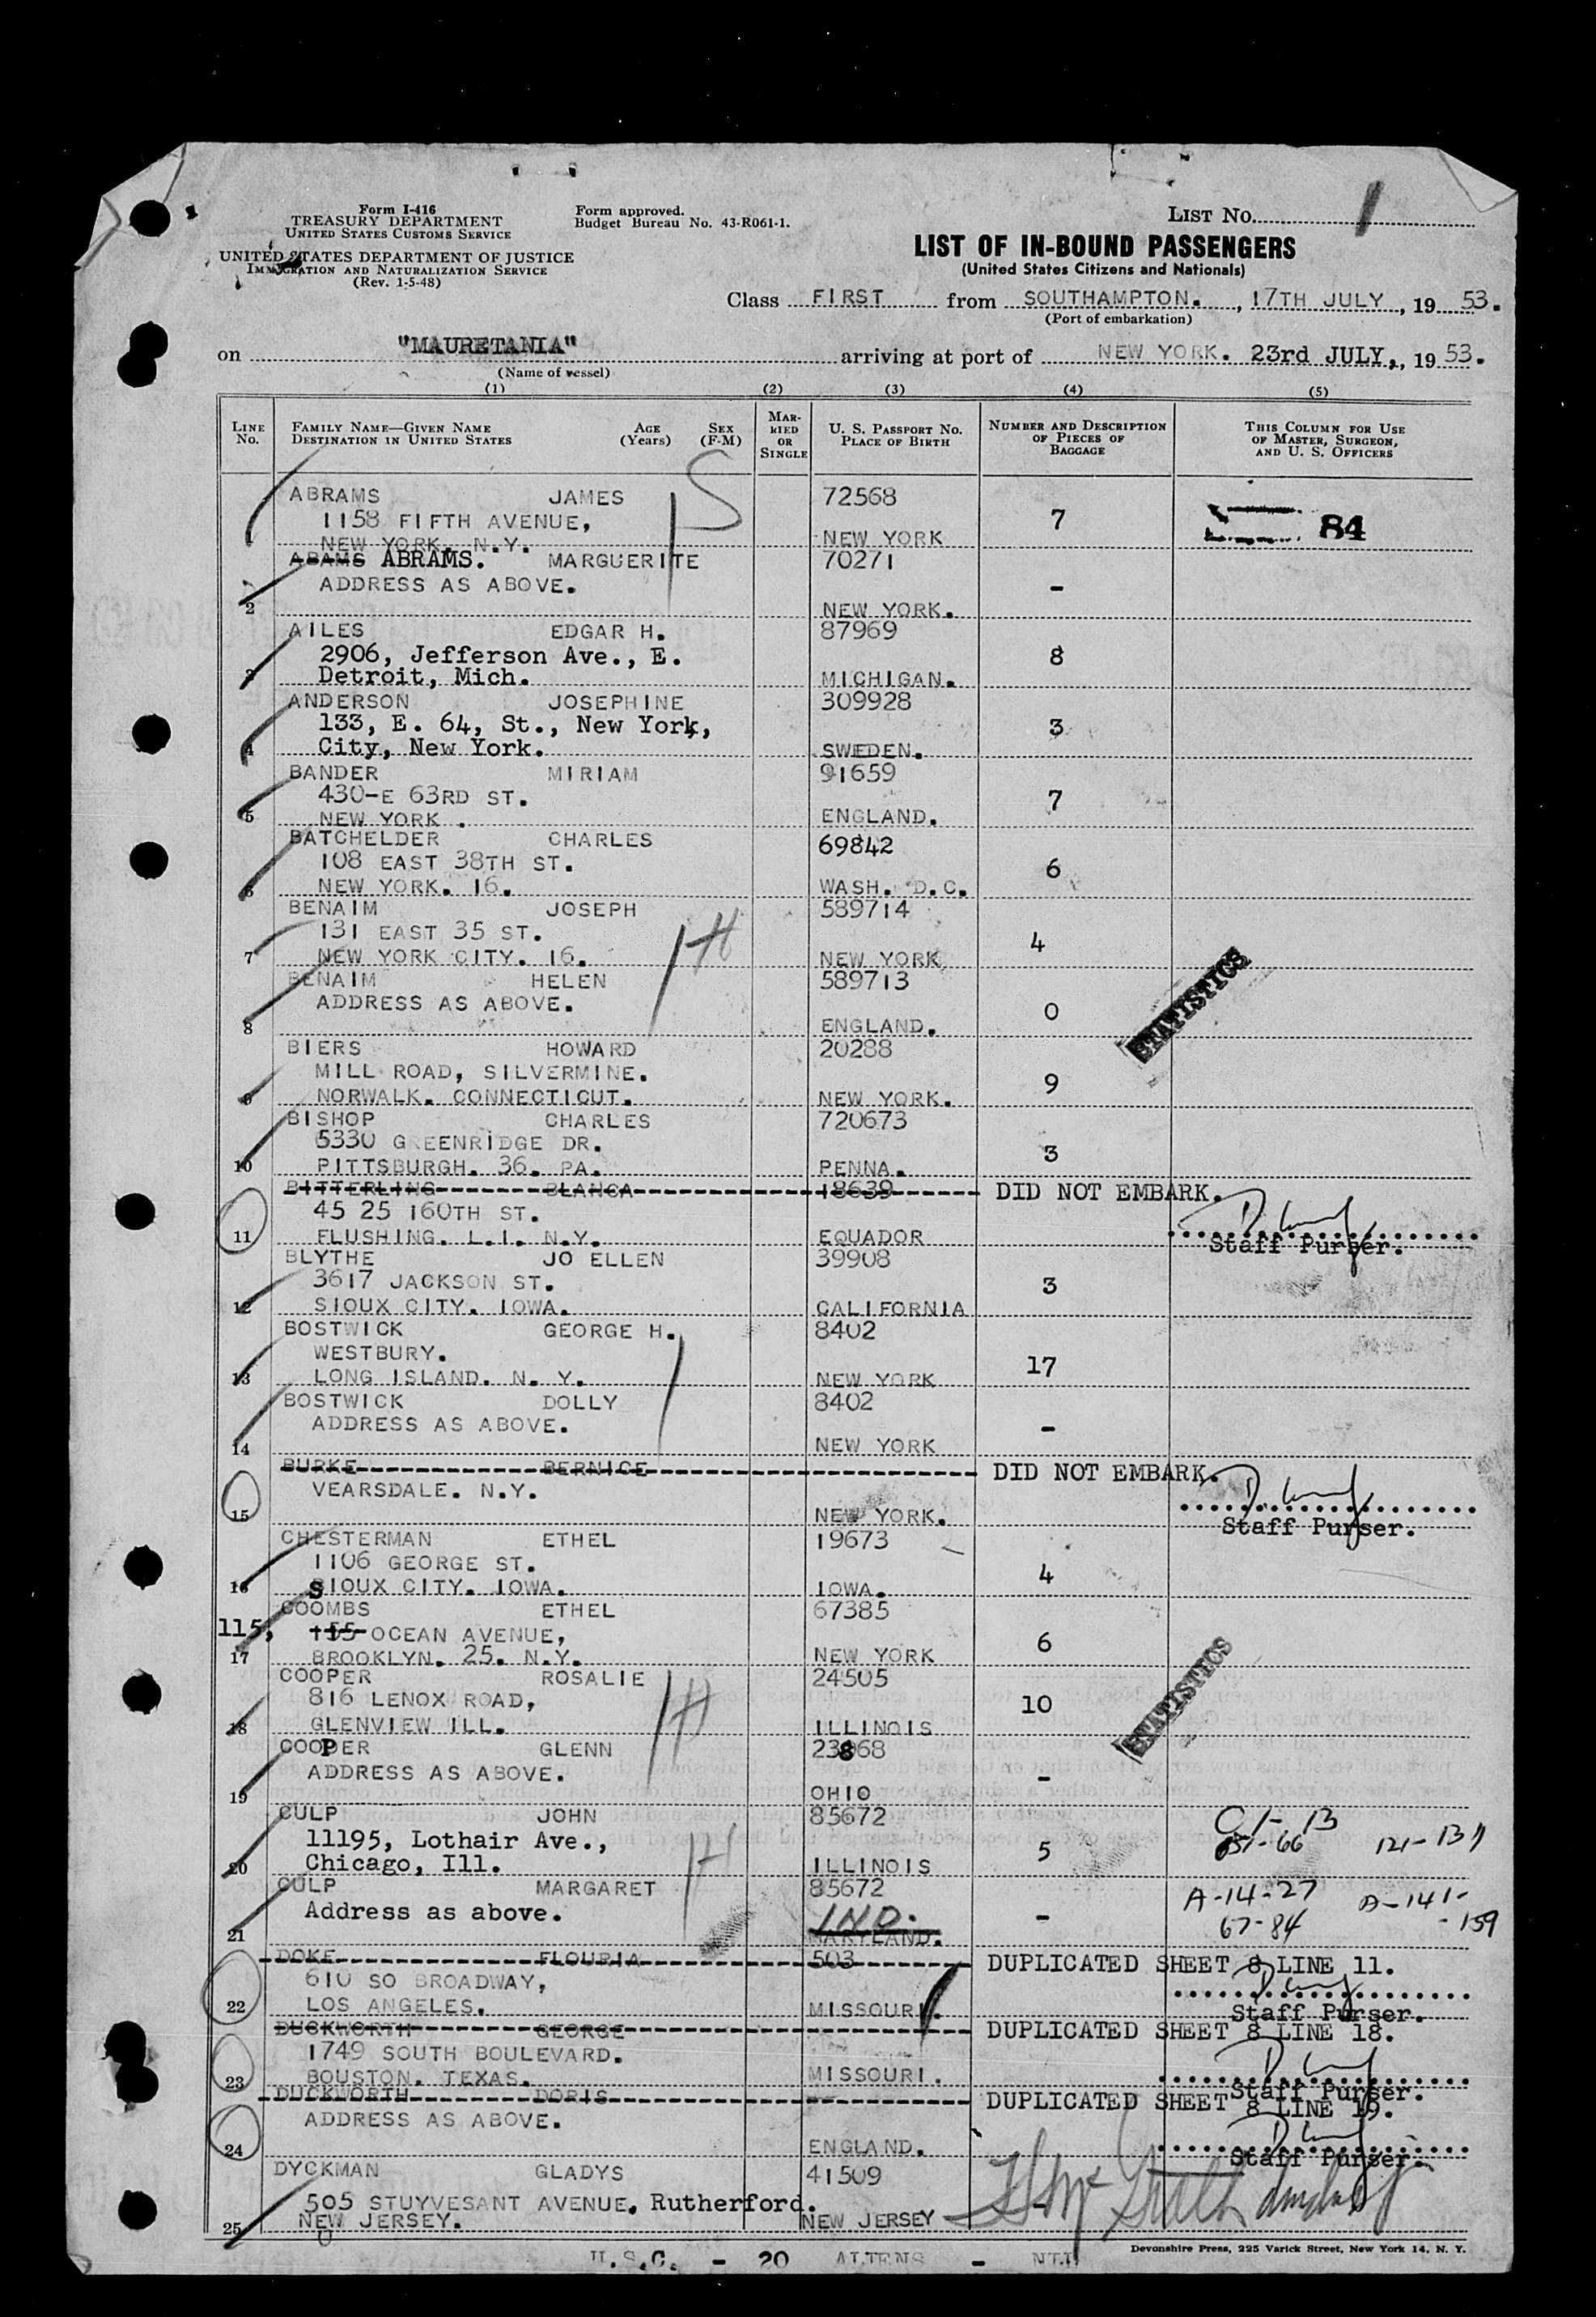 Form I-416
TREASURY DEPARTMENT
UNITED STATES CUSTOMS SERVICE
UNITED STATES DEPARTMENT OF JUSTICE
IMMIGRATION AND NATURALIZATION SERVICE
(Rev. 1-5-48)
Form approved.
Budget Bureau No. 43-R061-1.
LIST No. 1
LIST OF IN-BOUND PASSENGERS
(United States Citizens and Nationals)
Class FIRST from SOUTHAMPTON. , 17TH JULY , 19 53.
(Port of embarkation)
on "MAURETANIA" arriving at port of NEW YORK. 23rd JULY, , 19 53.
(Name of vessel)
(1) (2) (3) (4) (5)
LINE No. FAMILY NAME—GIVEN NAME DESTINATION IN UNITED STATES AGE (Years) SEX (F-M) MARRIED OR SINGLE U. S. PASSPORT No. PLACE OF BIRTH NUMBER AND DESCRIPTION OF PIECES OF BAGGAGE THIS COLUMN FOR USE OF MASTER, SURGEON, AND U. S. OFFICERS
ABRAMS JAMES S 72568
1158 FIFTH AVENUE, 7 84
NEW YORK. N.Y. NEW YORK
ABAMS ABRAMS. MARGUERITE 70271
ADDRESS AS ABOVE. -
2 NEW YORK.
AILES EDGAR H. 87969
2906, Jefferson Ave., E. 8
3 Detroit, Mich. MICHIGAN.
ANDERSON JOSEPHINE 309928
133, E. 64, St., New York, 3
4 City, New York. SWEDEN.
BANDER MIRIAM 91659
430-E 63RD ST. 7
5 NEW YORK . ENGLAND.
BATCHELDER CHARLES 69842
108 EAST 38TH ST. 6
6 NEW YORK. 16. WASH. D.C.
BENAIM JOSEPH 589714
131 EAST 35 ST. H 4
7 NEW YORK CITY. 16. NEW YORK
BENAIM HELEN 589713 STATISTICS
ADDRESS AS ABOVE. 0
8 ENGLAND.
BIERS HOWARD 20288
MILL ROAD, SILVERMINE. 9
9 NORWALK. CONNECTICUT. NEW YORK.
BISHOP CHARLES 720673
5330 GREENRIDGE DR. 3
10 PITTSBURGH. 36. PA. PENNA.
BITTERLING BLANCA 18639 DID NOT EMBARK.
45 25 160TH ST.
11 FLUSHING. L.I. N.Y. EQUADOR Staff Purser.
BLYTHE JO ELLEN 39908
3617 JACKSON ST. 3
12 SIOUX CITY. IOWA. CALIFORNIA
BOSTWICK GEORGE H. 8402
WESTBURY. 17
13 LONG ISLAND. N. Y. NEW YORK
BOSTWICK DOLLY 8402
ADDRESS AS ABOVE. -
14 NEW YORK
BURKE BERNICE DID NOT EMBARK.
VEARSDALE. N.Y.
15 NEW YORK. Staff Purser.
CHESTERMAN ETHEL 19673
1106 GEORGE ST. 4
16 SIOUX CITY. IOWA. IOWA.
COOMBS ETHEL 67385
115, 155 OCEAN AVENUE, 6
17 BROOKLYN. 25. N.Y. NEW YORK
COOPER ROSALIE 24505
816 LENOX ROAD, H 10 STATISTICS
18 GLENVIEW ILL. ILLINOIS
COOPER GLENN 23868
ADDRESS AS ABOVE. -
19 OHIO
CULP JOHN 85672 C 1-13
11195, Lothair Ave., H 5 51-66 121-131
20 Chicago, Ill. ILLINOIS
CULP MARGARET 85672 A-14-27 A-141-
Address as above. IND. - 67-84 -159
21 MARYLAND.
DOKE FLOURIA 503 DUPLICATED SHEET 8 LINE 11.
610 SO BROADWAY,
22 LOS ANGELES. MISSOURI. Staff Purser.
DUCKWORTH GEORGE DUPLICATED SHEET 8 LINE 18.
1749 SOUTH BOULEVARD.
23 BOUSTON. TEXAS. MISSOURI. Staff Purser.
DUCKWORTH DORIS DUPLICATED SHEET 8 LINE 19.
ADDRESS AS ABOVE.
24 ENGLAND. Staff Purser.
DYCKMAN GLADYS 41509
505 STUYVESANT AVENUE. Rutherford.
25 NEW JERSEY. NEW JERSEY
U.S.C. - 20 ALIENS - NIL
Devonshire Press, 225 Varick Street, New York 14, N. Y.